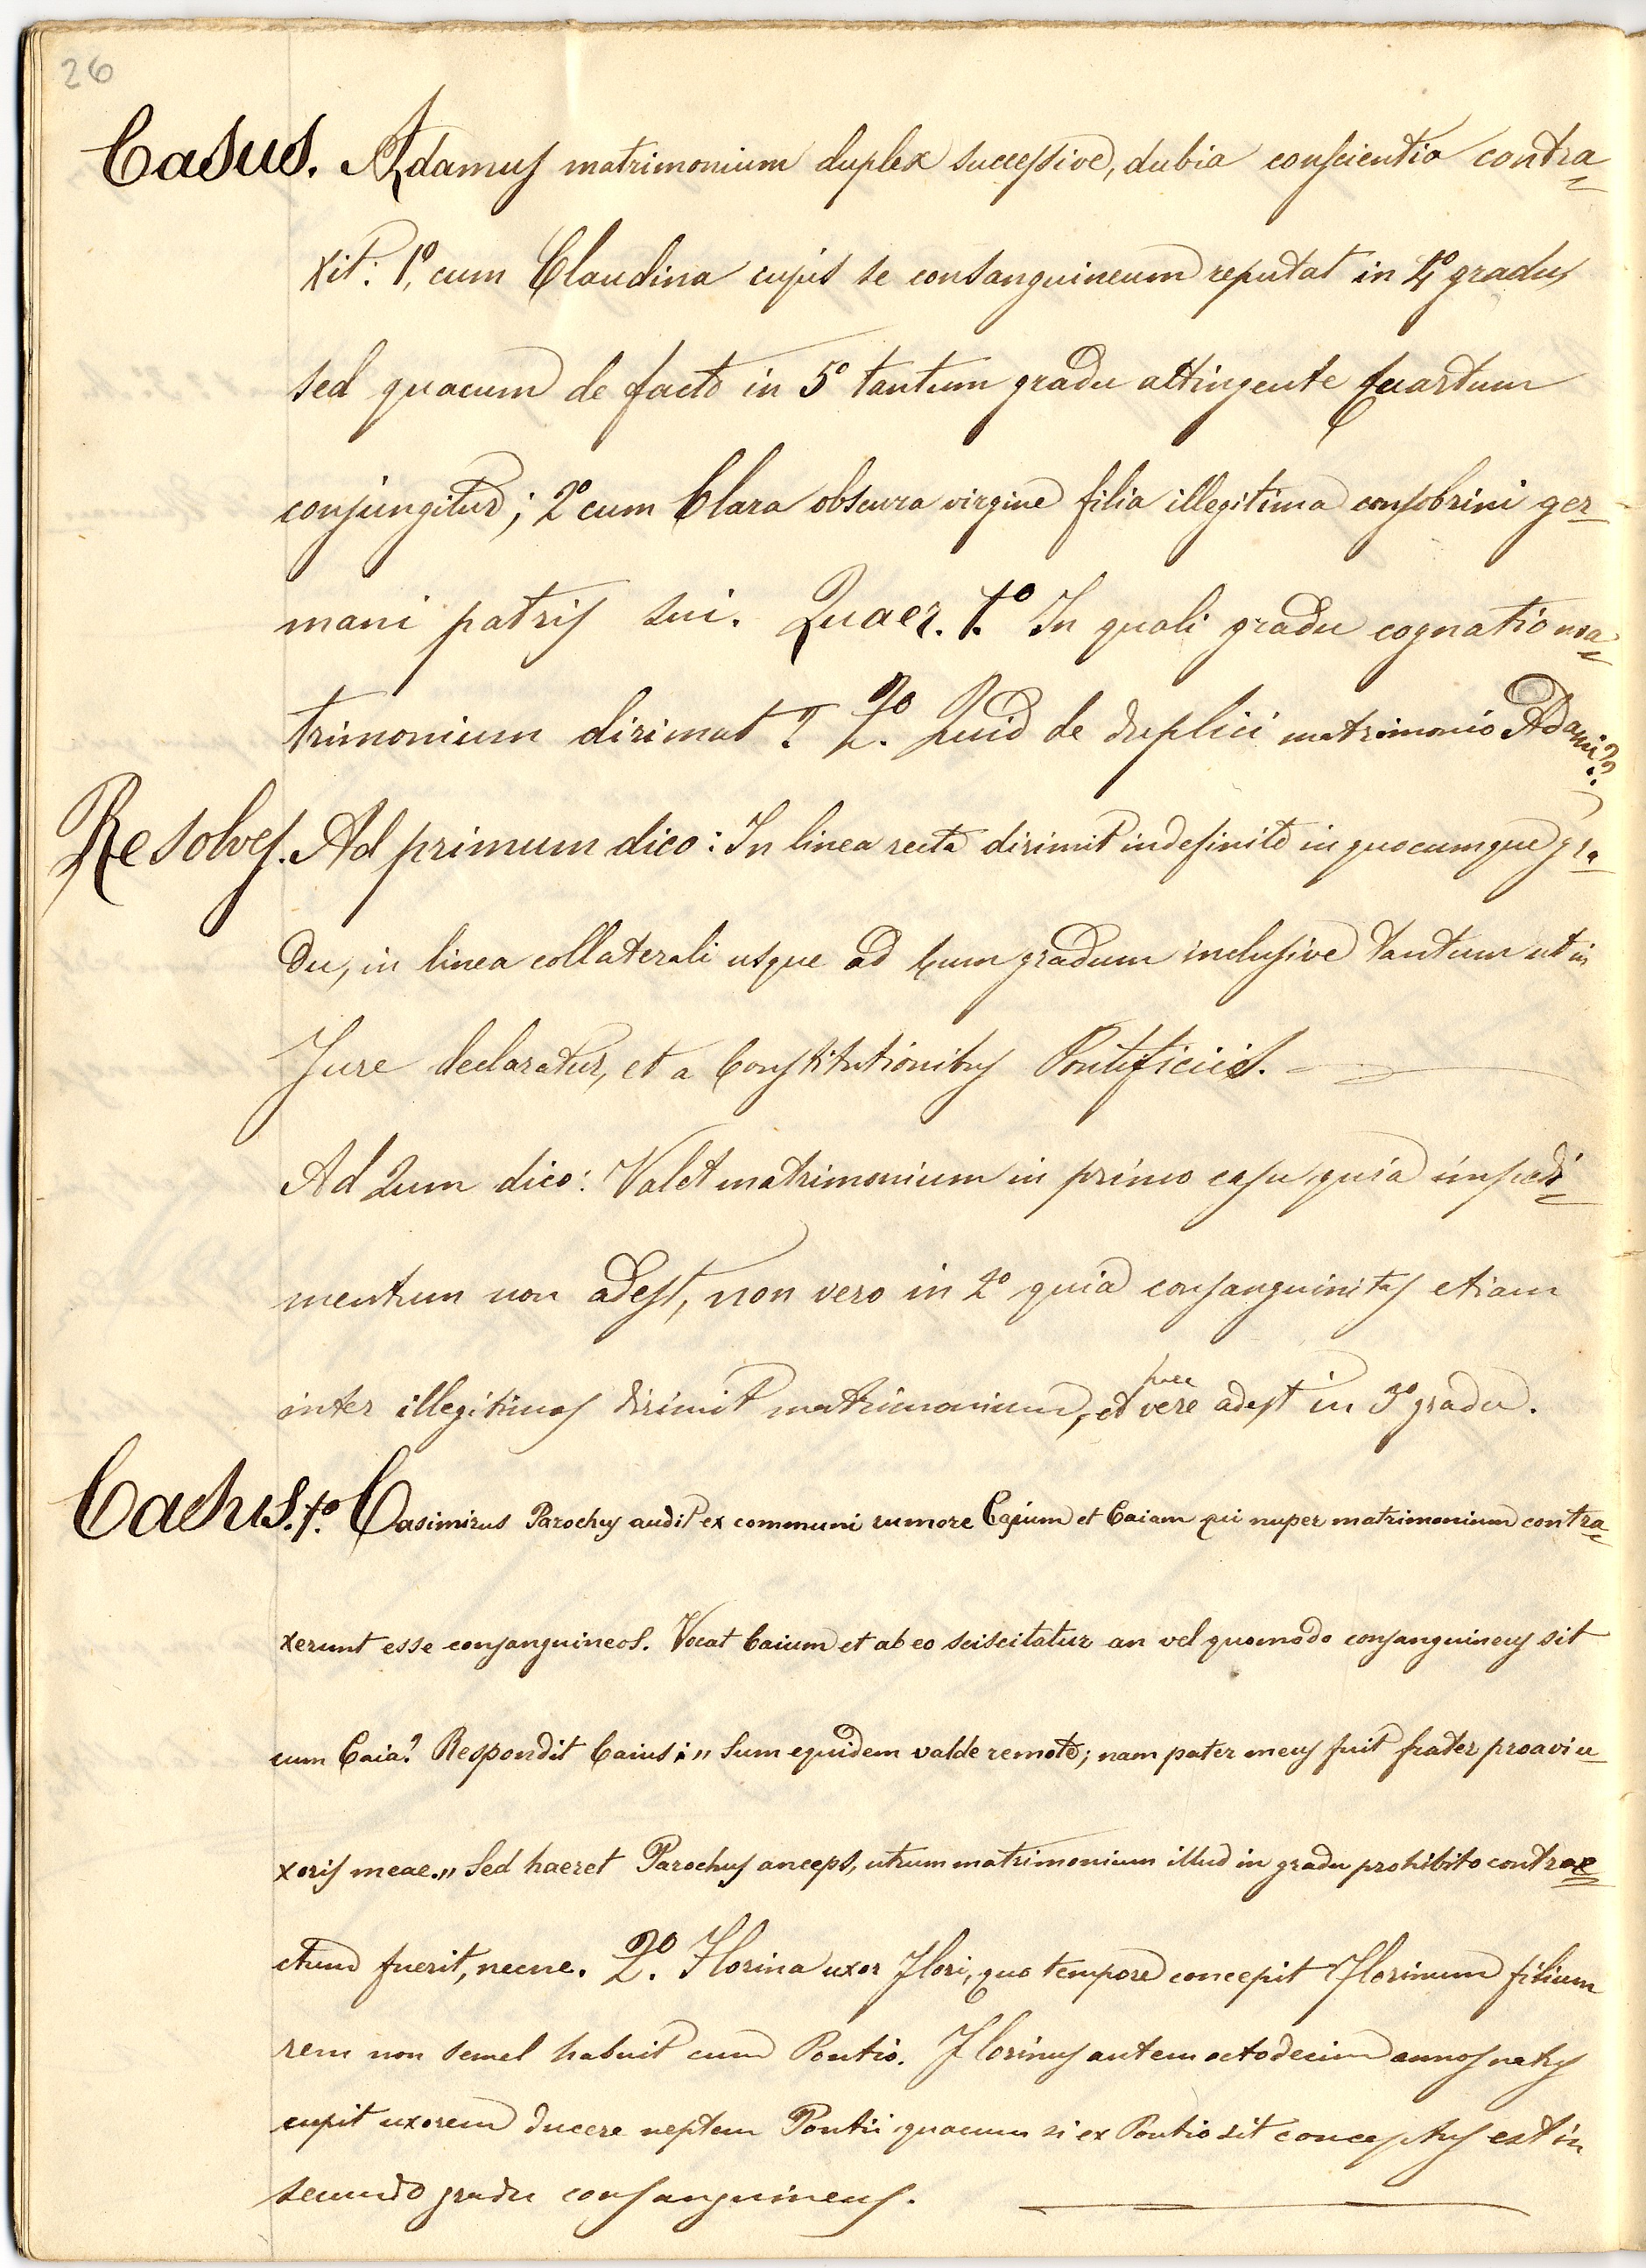 26
Casus. Adamus matrimonium duplex successive, dubia conscientia contra=
xit: 1º, cum Claudina cujus se consanguineum reputat in 4º gradu,
sed quacum de facto in 5º tantum gradu attingente quartum
conjungitur; 2º cum Clara obscura virgine filia illegitima consobrini ger-
mani patris sui. Quaer. 1.º In quali gradu cognatio ma=
trimonium dirimat? 2.º Quid de duplici matrimonio Adami?
Resolves. Ad primum dico: In linea recta dirimit indefinite in quocumque gra-
du, in linea collaterali usque ad 4um gradum inclusive tantum ut in
Jure declaratur, et a Constitutionibus Pontificiis.
Ad 2um dico: Valet matrimonium in primo casu, quia impedi=
mentum non adest, non vero in 2º quia consanguinitas etiam
inter illegitimos dirimit matrimonium, et haec vere adest in 3º gradu.
Casus. 1.º Casimirus Parochus audit ex communi rumore Cajum et Caiam qui nuper matrimonium contra=
xerunt esse consanguineos. Vocat Caium et ab eo sciscitatur an vel quomodo consanguineus sit
cum Caia? Respondit Caius: „ Sum equidem valde remote; nam pater meus fuit frater proavi u-
xoris meae. „ Sed haeret Parochus anceps, utrum matrimonium illud in gradu prohibito contra=
ctum fuerit, necne. 2.º Florina uxor Flori, quo tempore concepit Florinum filium
rem non semel habuit cum Pontio. Florinus autem octodecim annos natus
cupit uxorem ducere neptem Pontii quacum si ex Pontio sit conceptus est in
secundo gradu consanguineus.